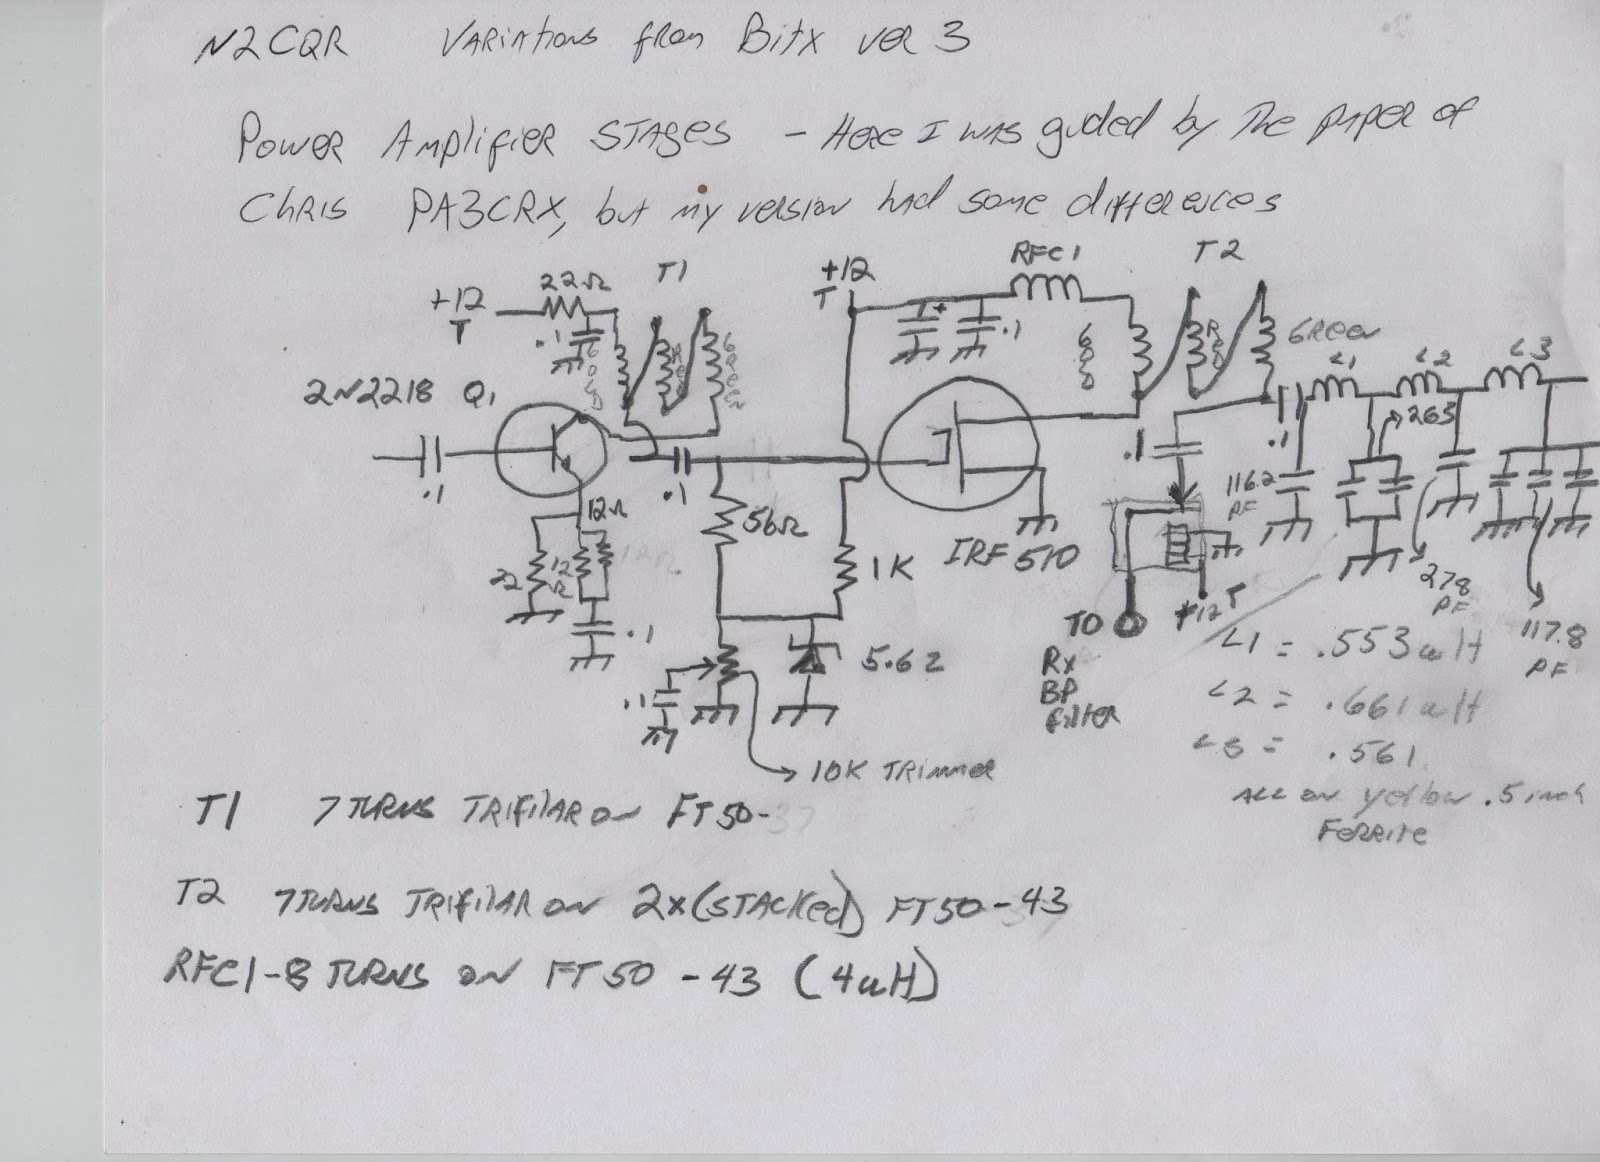 N2CQR Variations from Bitx ver 3
Power Amplifier Stages - Here I was guided by the paper of
Chris PA3CRX, but my version had some differences
RFC1
T2
T1
+12
T
22Ω
+12
T
.1
GOLD
Red
Green
.1
GOLD
Red
Green
L1
L2
L3
2N2218 Q1
.1
.1
56Ω
12Ω
22
12Ω
12Ω
.1
1K
IRF510
.1
.1
263
116.2
PF
278
PF
117.8
PF
TO
Rx
BP
filter
+12 T
5.6Z
.1
10K Trimmer
L1 = .553 uH
L2 = .661 uH
L3 = .561
All on yellow .5 inch
Ferrite
T1 7 TURNS TRIFILAR ON FT50-37
T2 7 TURNS TRIFILAR ON 2x (STACKED) FT50-43
RFC1-8 TURNS ON FT50-43 (4uH)